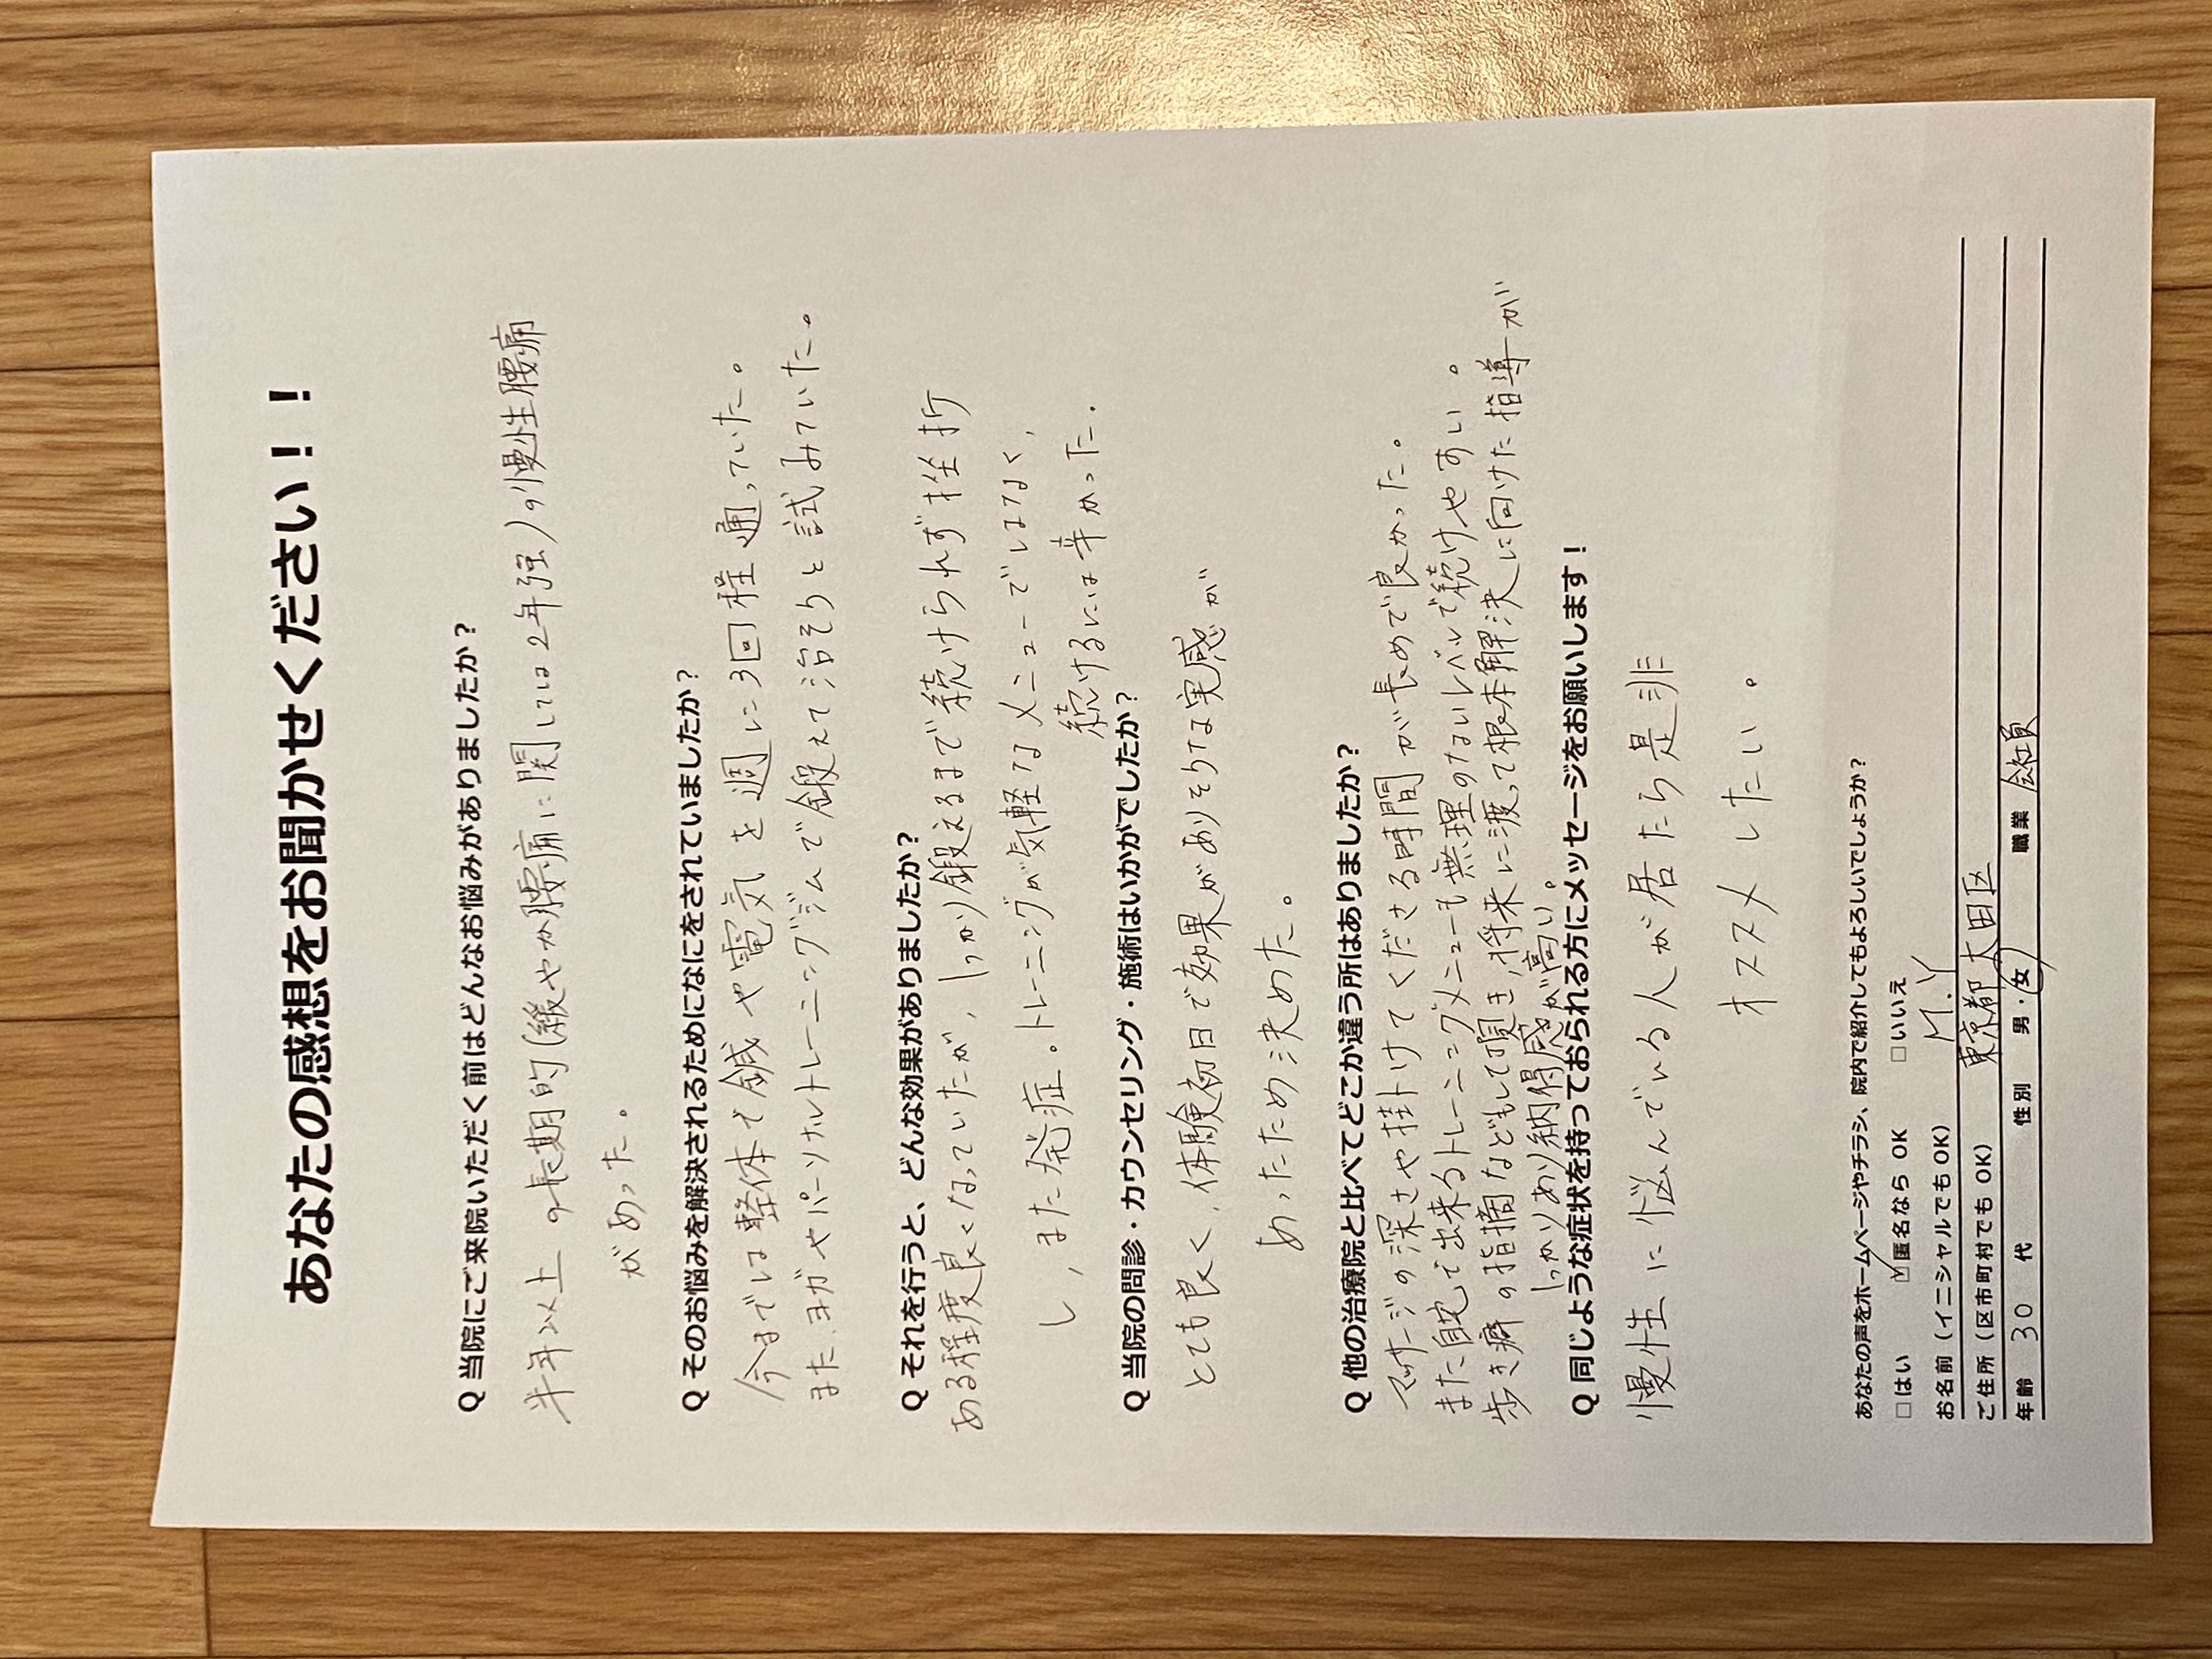 あなたの感想をお聞かせください！！
Q 当院にご来院いただく前はどんなお悩みがありましたか？
半年以上の長期的(緩やか腰痛に関しては2年強)の慢性腰痛
があった。
Q そのお悩みを解決されるためになにをされていましたか？
今までは整体で鍼や電気を週に3回程通っていた。
また、ヨガやパーソナルトレーニングジムで鍛えて治そうと試みていた。
Q それを行うと、どんな効果がありましたか？
ある程度良くなっていたが、しっかり鍛えるまで続けられず挫折
し、また発症。トレーニングが気軽なメニューではなく、
続けるには辛かった。
Q 当院の問診・カウンセリング・施術はいかがでしたか？
とても良く、体験初日で効果がありそうな実感が
あったため決めた。
Q 他の治療院と比べてどこか違う所はありましたか？
マッサージの深さや掛けてくださる時間が長めで良かった。
また自宅で出来るトレーニングメニューも無理のないレベルで続けやすい。
歩き癖の指摘などもして頂き、将来に渡って根本解決に向けた指導が
しっかりあり納得感が高い。
Q 同じような症状を持っておられる方にメッセージをお願いします！
慢性に悩んでいる人が居たら是非
オススメしたい。
あなたの声をホームページやチラシ、院内で紹介してもよろしいでしょうか？
□はい ☑匿名なら OK □いいえ
お名前（イニシャルでも OK） M.Y
ご住所（区市町村でも OK） 東京都大田区
年齢 30 代 性別 男・女 職業 会社員